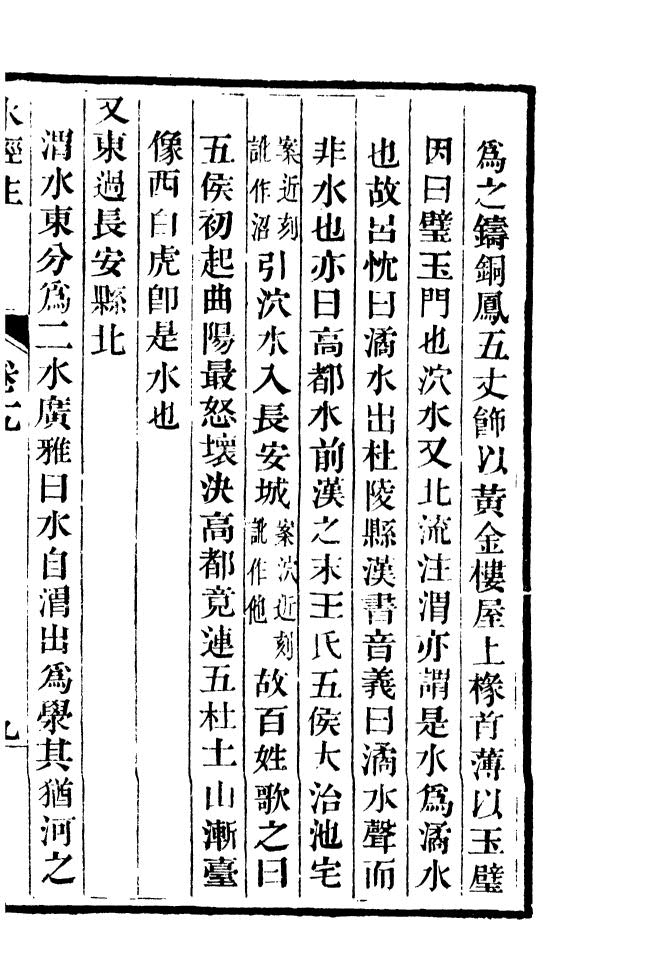 為之鑄銅鳳五丈飾以黃金樓屋上椽首薄以玉璧
因曰璧玉門也泬水又北流注渭亦謂是水為潏水
也故呂忱曰潏水出杜陵縣漢書音義曰潏水聲而
非水也亦曰高都水前漢之末王氏五侯大治池宅
案近刻訛作沼引泬水入長安城案泬近刻訛作他故百姓歌之曰
五侯初起曲陽最怒壞決高都竟連五杜土山漸臺
像西白虎卽是水也
又東過長安縣北
渭水東分為二水廣雅曰水自渭出為㶅其猶河之
水經注 卷十九 九